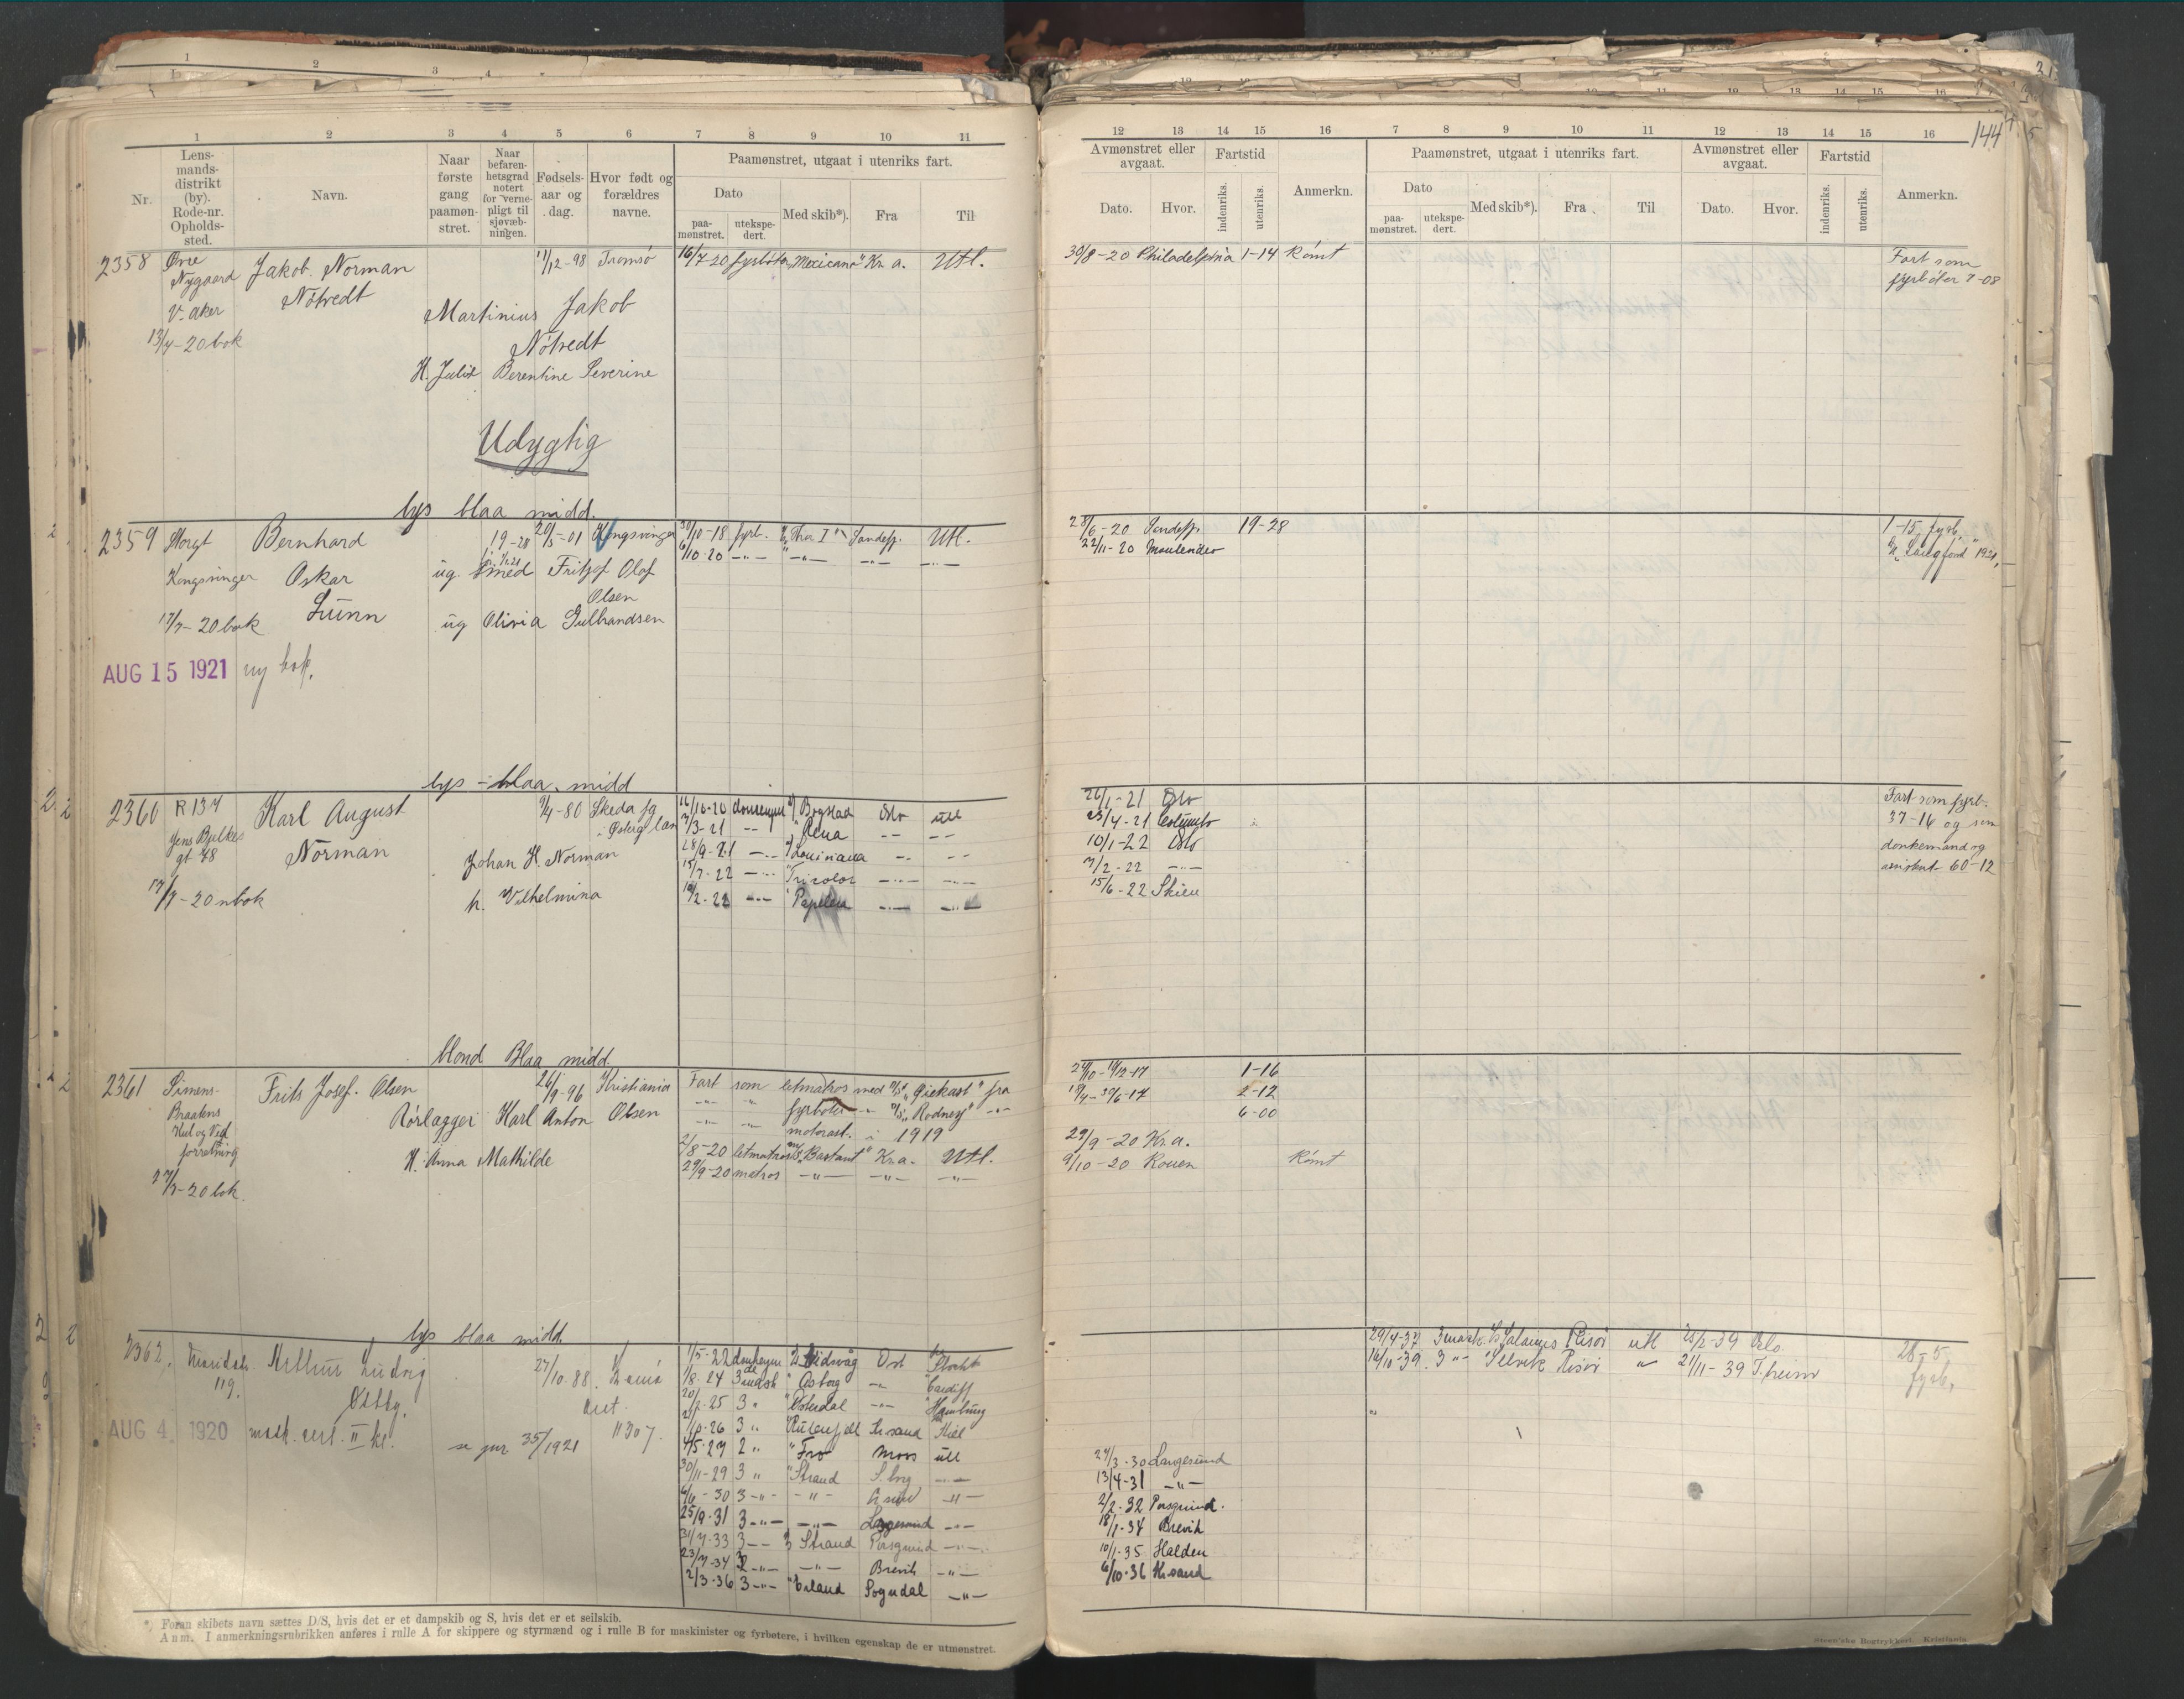 1 2 3 4 5 6 7 8 9 10 11
Nr.
Lens-
mands-
distrikt
(by).
Rode-nr.
Opholds-
sted.
Navn.
Naar
første
gang
paamøn-
stret.
Naar
befaren-
hetsgrad
notert
for verne-
pligt til
sjøvæb-
ningen.
Fødsels-
aar og
dag.
Hvor født og
forældres
navne.
Paamønstret, utgaat i utenriks fart.
Dato
paa-
mønstret.
utekspe-
dert.
Med skib*).
Fra
Til
2358 Øvre Jakob Norman 11/12-98 Tromsø 16/7-20 fyrbøter „Mexicano" Kr.a. Utl.
Nygaard Nötvedt
V. Aker Martinius Jakob
13/7-20 bok Nötvedt
H. Julie Berentine Severine
Udygtig
lys blaa midd.
2359 Storgt Bernhard 19-28 20/5-01 Kongsvinger 30/10-18 fyrb. „Thor I" Sandefj. Utl.
6/10-20 -"- -"- -"- -"-
Kongsvinger Oskar ug. smed Fritjof Olaf
Olsen
17/7-20 bok Lunn ug Olivia Gulbrandsen
AUG 15 1921 ny bok.
lys - blaa, midd
2360 R 137 Karl August 9/4-80 Skeda sg 16/10-20 donkeym. Bogstad Oslo utl
Jens Bjelkes i Østerg.lan 7/3-21 -"- Rena -"- -"-
gt 48 Norman Johan H. Norman 28/9-21 -"- Louisiana -"- -"-
15/7-22 -"- Tricolor -"- -"-
17/7-20 n bok h. Vilhelmina 10/2-22 -"- -"- -"-
blond Blaa midd
2361 Simens- Frits Josef. Olsen 26/9-96 Kristiania Fart som letmatros med fra
Braatens Rörlægger Karl Anton Olsen -"- -"- fyrbøter -"- „Rodney" -"-
Kul og Ved -"- -"- motorast. i 1919
forretning H. Anna Mathilde 2/8-20 letmatros „Bastant" Kr.a. Utl.
29/9-20 matros -"- -"- -"-
27/7-20 bok.
lys blaa midd.
2362. Maridals. Arthur Ludvig 27/10 88. 1/5-22 donkeym Vidvåg
119. Østby. 1/8-24 3 mask Asborg -"- Cardiff
AUG 4. 1920 mask. cert. II kl. se jnr 35/1921 11307. 25 3 " Østerdal -"- Hamburg
26 3 " Kr.sand Kiel
4/5-27 2 " Fro Moss utl
30/11-29 3 " Strand S.borg -"-
6/6-30 3 -"- -"- -"-
25/9-31 3 -"- -"- Langesund -"-
31/7-33 3 -"- Strand Porsgrund -"-
23/7-34 3 -"- -"- Brevik -"-
2/3-36 3 -"- Erland Sogndal -"-
*) Foran skibets navn sættes D/S, hvis det er et dampskib og S, hvis det er et seilskib.
Anm. I anmerkningsrubrikken anføres i rulle A for skippere og styrmænd og i rulle B for maskinister og fyrbøtere, i hvilken egenskap de er utmønstret.
12 13 14 15 16 7 8 9 10 11 12 13 14 15 16 144
Avmønstret eller
avgaat.
Dato.
Hvor.
Fartstid
indenriks.
utenriks.
Anmerkn.
Paamønstret, utgaat i utenriks fart.
Dato
paa-
mønstret.
utekspe-
dert.
Med skib*).
Fra
Til
Avmønstret eller
avgaat.
Dato.
Hvor.
Fartstid
indenriks.
utenriks.
Anmerkn.
30/8-20 Philadelphia 1-14 Rømt Fart som
fyrbøter 7-08
28/6-20 Sandefj. 19-28 1-15 fyrb.
22/11-20 „Langfond" 1921,
26/1-21 Oslo Fart som fyrb.
23/4-21 37-16 og som
10/1-22 Oslo donkemand og
7/2-22 -"- assistant 60-12
15/6-22 Skien
1-16
2-12
6-00
29/9-20 Kr.a.
9/10-20 Rouen Rømt
29/4-37 3 mask. Risør utl 25/2-39 Oslo 28-5
14/10-39 3 -"- Selvik Risör " 21/11-39 T.heim fyrb,
24/3-30 Langesund
13/4-31 -"-
2/2-32 Porsgrund.
18/1-34 Brevik
10/1-35 Halden
6/10-36 Kr.sand
Steen'ske Bogtrykkeri, Kristiania